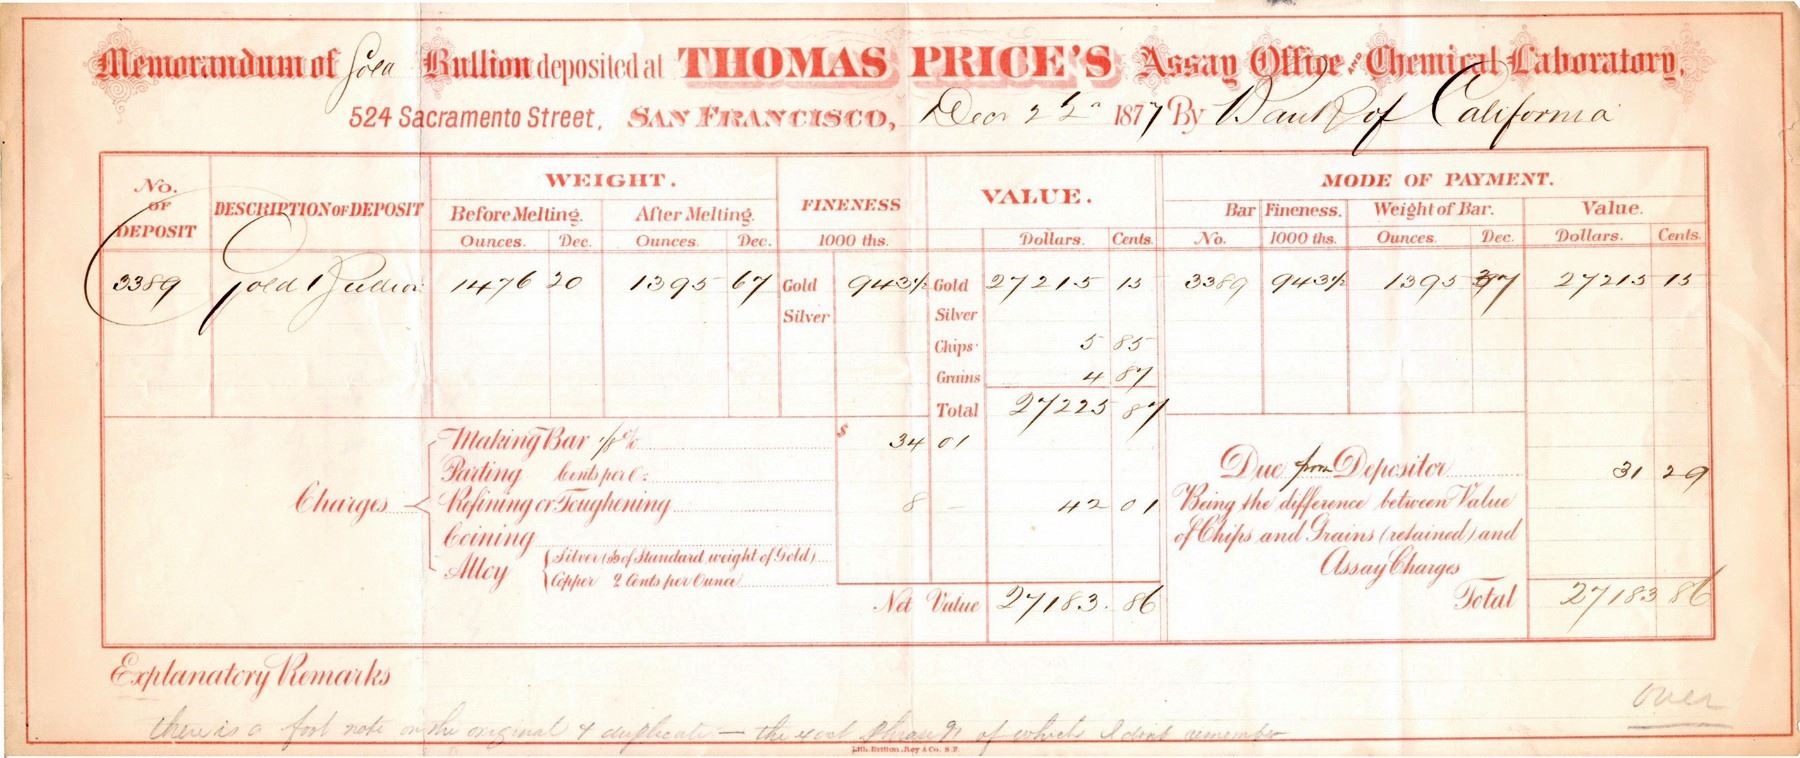 Memorandum of Gold Bullion deposited at THOMAS PRICE'S Assay Office AND Chemical Laboratory,
524 Sacramento Street, SAN FRANCISCO, 1877 By Bank of California
No. OF DEPOSIT DESCRIPTION OF DEPOSIT WEIGHT. FINENESS VALUE. MODE OF PAYMENT.
Before Melting. After Melting. Bar Fineness. Weight of Bar. Value.
Ounces. Dec. Ounces. Dec. 1000 ths. Dollars. Cents. No. 1000 ths. Ounces. Dec. Dollars. Cents.
3389 Gold Bullion 1476 20 1395 67 Gold 943½ Gold 27215 15 3389 943½ 1395 27215 15
Silver Silver
Chips 5 85
Grains 4 87
Total 27225 87
Charges
Making Bar ⅛% $ 34 01
Parting Cents per O:
Refining or Toughening 8 – 42 01
Coining
Alloy
Silver ( of Standard weight of Gold)
Copper 2 Cents per Ounce
Net Value 27183. 86
Due from Depositor 31 29
Being the difference between Value
of Chips and Grains (retained) and
Assay Charges
Total 27183 86
Explanatory Remarks
over
there is a foot note on the original & duplicate — the exact phrase of which I dont remember
Lith. Britton, Rey & Co. S.F.